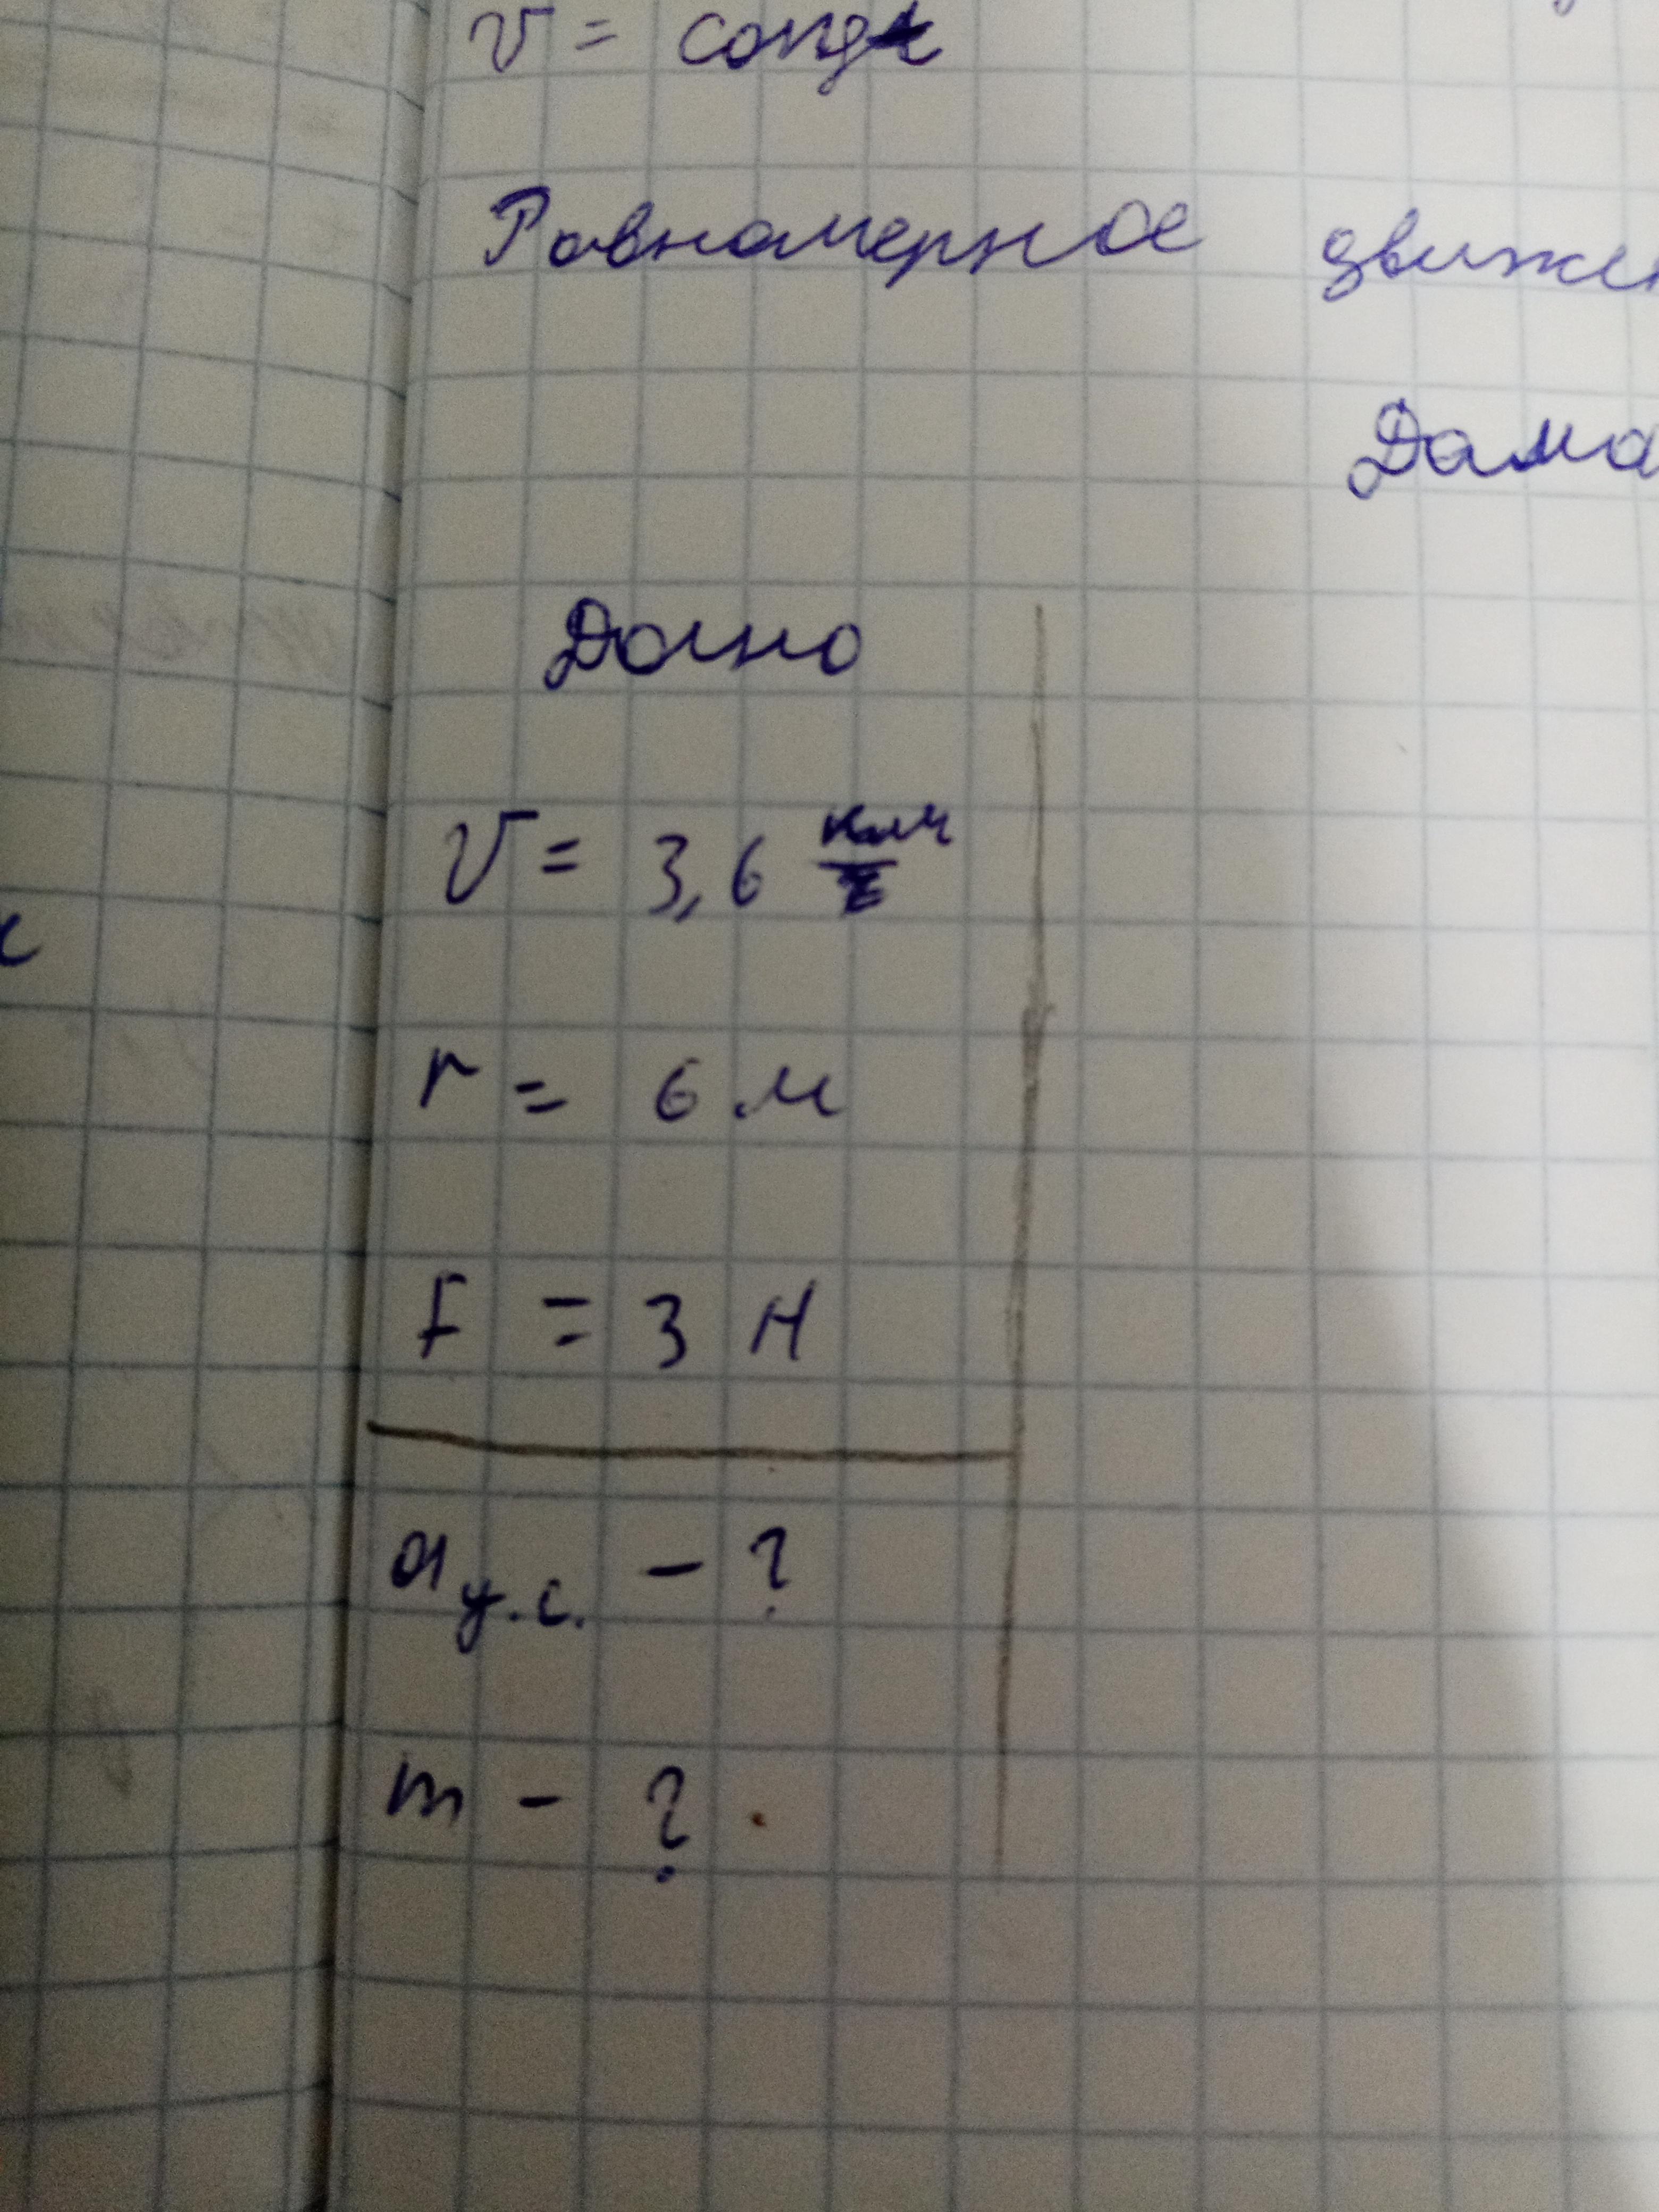 v = const
Равномерное движен
Дома
Дано
v = 3,6 км
r = 6 м
F = 3 Н
a ц.с. - ?
m - ?